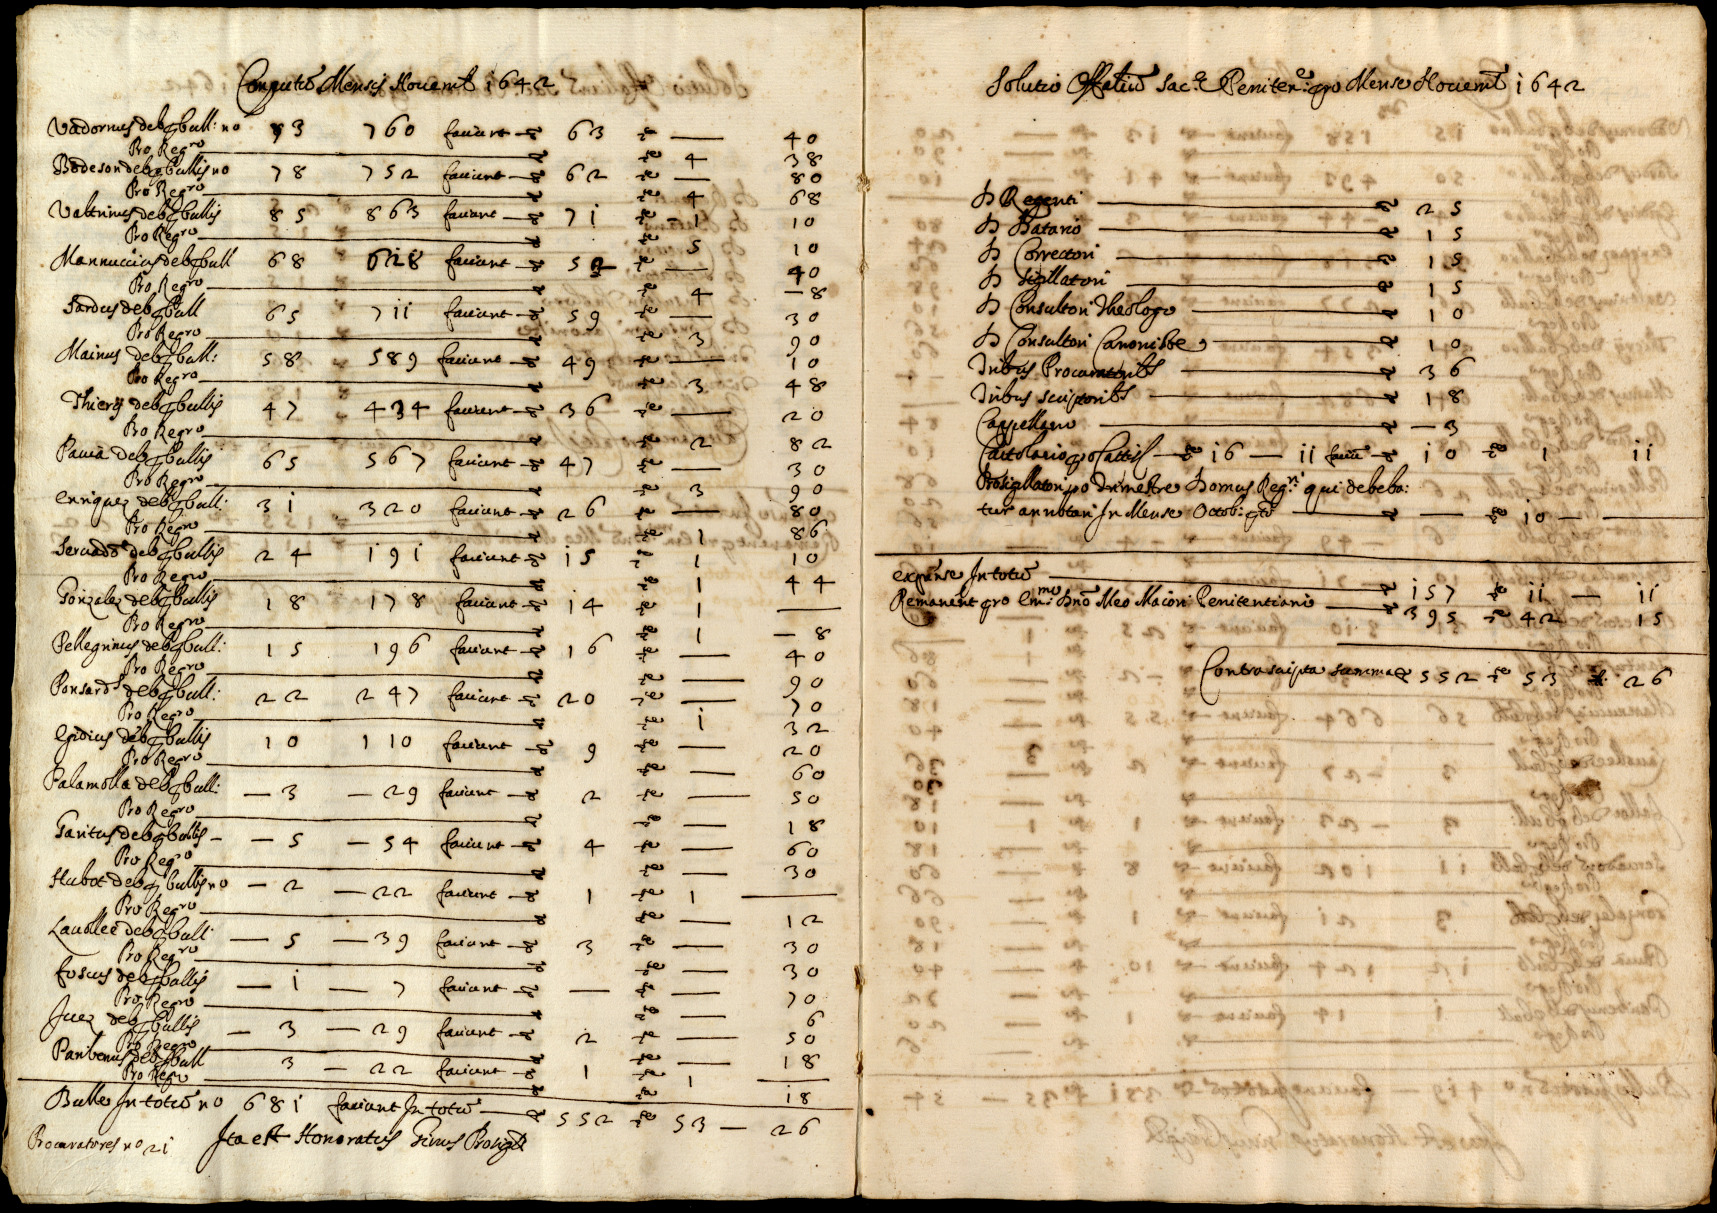 Computus Mensis Novemb. 1642
Vadornus deb. p. bull: no 93 760 faciunt ∇ 63 te — 40
Pro Regro — ∇ te 4 38
Bodeson deb. p. bullis no 78 752 faciunt ∇ 62 te — 80
Pro Regro — ∇ te 4 68
Valtrinus deb. p. bullis 85 863 faciunt — ∇ 71 te - 1 10
Pro Regro — ∇ te 5 10
Mannuccius deb. p. bull 68 628 faciunt — ∇ te — 40
Pro Regro — ∇ te 4 — 8
Sardus deb. p. bull 65 711 faciunt — ∇ 59 te — 30
Pro Regro — ∇ te 3 90
Mainus deb. p. bull: 58 589 faciunt — ∇ 49 te — 10
Pro Regro — ∇ te 3 48
Thierij deb. p. bullis 47 434 faciunt — ∇ 36 te — 20
Pro Regro — ∇ te 2 82
Pavia deb. p. bullis 65 567 faciunt — ∇ 47 te — 30
Pro Regro — ∇ te 3 90
Enriquez deb. p. bull: 31 320 faciunt — ∇ 26 te — 80
Pro Regro — ∇ te 1 86
Servados deb. p. bullis 24 191 faciunt — ∇ 15 te 1 10
Pro Regro — ∇ te 1 44
Gonzalez deb. p. bullis 18 178 faciunt — ∇ 14 te 1 —
Pro Regro — ∇ te 1 — 8
Pellegrinus deb. p. bull: 15 196 faciunt — ∇ 16 te — 40
Pro Regro — ∇ te — 90
Ponsards deb. p. bull: 22 247 faciunt — ∇ 20 te — 70
Pro Regro — ∇ te 1 32
Egidius deb. p. bullis 10 110 faciunt — ∇ 9 te — 20
Pro Regro — ∇ te — 60
Palamolla deb. p. bull: — 3 — 29 faciunt — ∇ 2 te — 50
Pro Regro — ∇ te — 18
Garitus deb. p. bullis — — 5 — 54 faciunt — ∇ 4 te — 60
Pro Regro — ∇ te — 30
Hubot deb. p. bullis no — 2 — 22 faciunt — ∇ 1 te 1 —
Pro Regro — ∇ te — 12
Lavollee deb. p. bull — 5 — 39 faciunt — ∇ 3 te — 30
Pro Regro — ∇ te — 30
Foscus deb. p. bullis — 1 — 7 faciunt — ∇ — te — 70
Pro Regro — ∇ te — 6
Juez deb. p. bullis — 3 — 29 faciunt — ∇ 2 te — 50
Pro Regro — ∇ te — 18
Paribenus deb. p. bull 3 — 22 faciunt — ∇ 1 te 1 —
Pro Regro — ∇ te 18
Bulle In totum no 681 faciunt In totum — ∇ 552 te 53 — 26
Procuratores no 21 Ita est Honoratus Prosigil
Solutio Offitialium Sac.e Peniten.e pro Mense Novemb. 1642
D Regenti — ∇ 25
D Datario — ∇ 15
D Correctori — ∇ 15
D Sigillatori — ∇ 15
D Consultori Theologo — ∇ 10
D Consultori Canonistae — ∇ 10
Tribus Procuratoribus — ∇ 36
Tribus scriptoribus — ∇ 18
Cappellano — ∇ — 3
Cartolario p. Cartis — te 16 — 11 faciu ∇ 10 te 1 11
Prosigillatori po Trimestre Domus Regri qui debeba:
tur annotari In Mense Octob: — ∇ — te 10 —
expense In totum — ∇ 157 te 11 — 11
Remanent pro Emmo Dno Meo Maiori Penitentiario — ∇ 395 te 42 15
Contrascripta summa ∇ 552 te 53 26